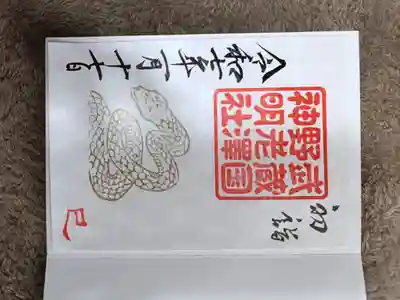 初詣
武蔵国
野老澤
神明社
巳
令和七年一月十一日